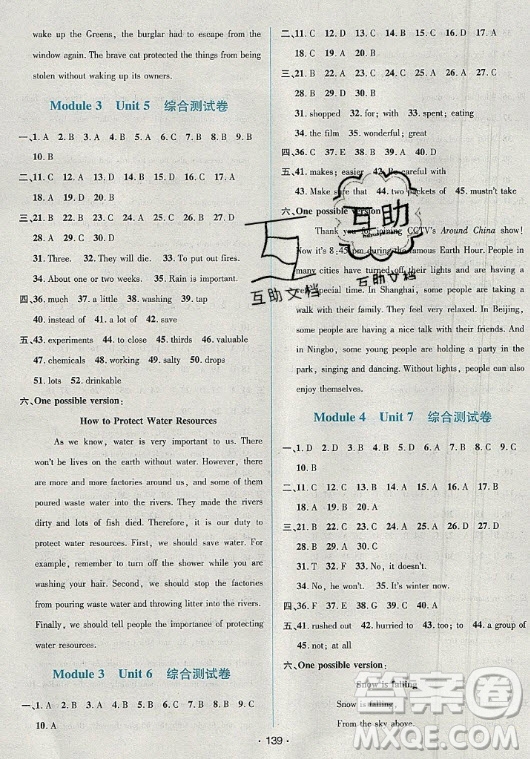 wake up the Greens, the burglar had to escape without
taking anything. The brave cat protected the things from being
stolen without waking up its owners.
Module 3 Unit 5 综合测试卷
一、1. A 2. B 3. A 4. B 5. A 6. B 7. B 8. B 9. B
10. B
二、11. A 12. D 13. B 14. A 15. D 16. C 17. C
18. C 19. A 20. B
三、21. B 22. D 23. C 24. A 25. B 26. D 27. C
28. D 29. A 30. B
31. Three. 32. They did. 33. To put out fires.
34. About one or two weeks. 35. Rain is important.
四、36. much 37. a little 38. washing 39. tap
40. instead of 41. a lot of 42. save
五、43. experiments 44. to collect 45. tidy 46. valuable
47. chemicals 48. working 49. salty 50. drops
51. lots 52. drinkable
六、One possible version:
How to Protect Water Resources
As we know, water is very important to us. There
won't be lives on the earth without water. However, there
are more and more factories around us. Some factories
poured waste water into the rivers. The rivers made rivers dirty
and lots of fish died. Therefore, it is our duty to
protect water resources. First, we should save water. For
example, remember to turn off the shower while washing
your hair. Second, we should stop the factories
from pouring waste water and throwing litter into the rivers.
Finally, we should teach people the importance of protecting
water resources.
Module 3 Unit 6 综合测试卷
一、1. C 2. B 3. C 4. B 5. B 6. C 7. B 8. C 9. C
10. A
二、11. C 12. C 13. D 14. C 15. B 16. B 17. B
18. C 19. A 20. A
三、21. D 22. A 23. B 24. B 25. C 26. B 27. A
28. B 29. C 30. B
31. shopped 32. for 33. if 34. fantastic
34. the film 35. wonderful; great
四、41. makes; easier 42. Be careful with
43. Make sure that 44. two packets of 45. mustn't take
六、One possible version:
Thank you for joining CCTV's Around China show!
Now it's 8:45 pm during the famous Earth Hour. People in
many cities have turned off their lights and having a
special time. In Shanghai, some people are taking a
walk with their family. They feel relaxed. In Beijing,
some people are having a nice talk with their friends.
And in Ningbo, some people are holding a party in the
park, singing and dancing. Without lights, people can still
enjoy themselves.
Module 4 Unit 7 综合测试卷
一、1. D 2. D 3. A 4. C 5. D 6. A 7. C 8. C 9. C
10. B
二、11. C 12. A 13. D 14. C 15. C 16. D 17. D
18. A 19. B 20. A
三、21. D 22. D 23. C 24. B 25. A 26. C 27. A
28. B 29. C 30. B
31. No, he didn't. 33. No, it doesn't.
34. No, he won't. 35. No, it wasn't.
四、36. F 37. E 38. D 39. A 40. C
五、41. rushed out 42. hurried to 43. too to 44. A group of
45. not; at all
六、One possible version:
Snow is falling
Snow is falling
From the sky above.
· 139 ·
互助
互助文档
互助文档
答案圈